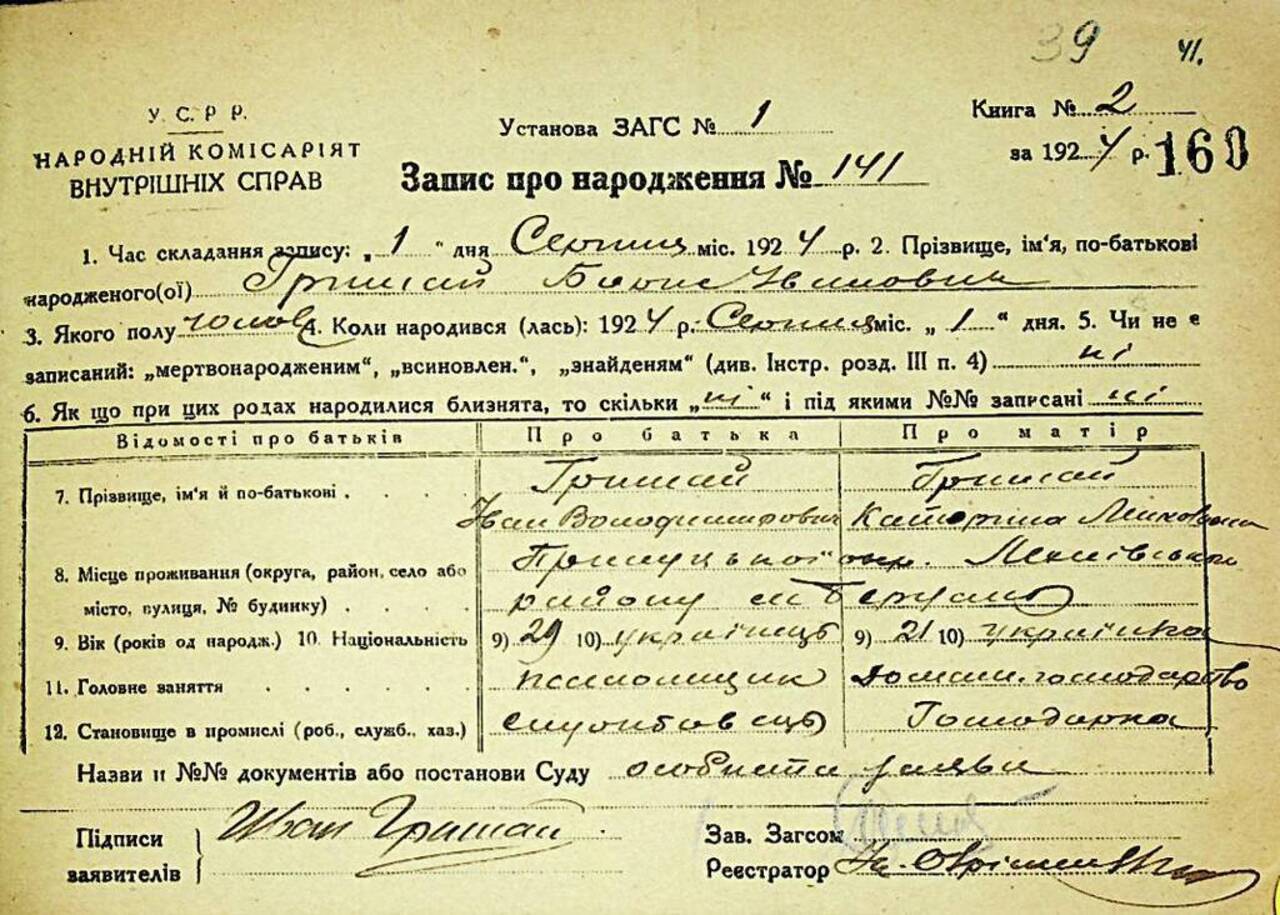 39 41.
У. С. Р Р.
НАРОДНІЙ КОМІСАРІЯТ
ВНУТРІШНІХ СПРАВ
Установа ЗАГС № 1
Книга № 2
за 1924 р. 160
Запис про народження № 141
1. Час складання запису: „1“ дня Серпня міс. 1924 р. 2. Прізвище, ім'я, по-батькові
народженого(ої) Гришай Борис Іванович
3. Якого полу чолов 4. Коли народився (лась): 1924 р. Серпня міс. „1“ дня. 5. Чи не є
записаний: „мертвонародженим“, „всиновлен.“, „знайденям“ (див. Інстр. розд. III п. 4) ні
6. Як що при цих родах народилися близнята, то скільки „ні“ і під якими №№ записані ні
Відомості про батьків Про батька Про матір
7. Прізвище, ім'я й по-батькові . . . . Гришай Гришай
Іван Володимирович Катерина
8. Місце проживання (округа, район, село або Прилуцької окр.
місто, вулиця, № будинку) . . . . району
9. Вік (років од народж.) 10. Національність 9) 29 10) українець 9) 21 10) українка
11. Головне заняття . . . . . . псаломщик домашн. господарство
12. Становище в промислі (роб., служб., хаз.) службовець Господарка
Назви и №№ документів або постанови Суду особиста заява
Підписи
заявителів
Иван Гришай
Зав. Загсом
Реєстратор